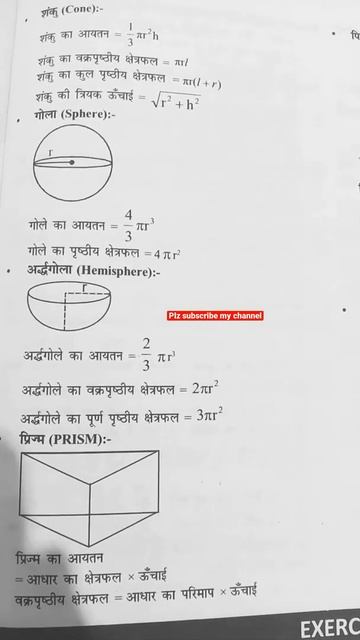 शंकु (Cone):-
शंकु का आयतन = 1/3 πr²h
शंकु का वक्रपृष्ठीय क्षेत्रफल = πrl
शंकु का कुल पृष्ठीय क्षेत्रफल = πr(l + r)
शंकु की त्रियक ऊँचाई = √r² + h²
गोला (Sphere):-
r
गोले का आयतन = 4/3 πr³
गोले का पृष्ठीय क्षेत्रफल = 4πr²
अर्द्धगोला (Hemisphere):-
r
Plz subscribe my channel
अर्द्धगोले का आयतन = 2/3 πr³
अर्द्धगोले का वक्रपृष्ठीय क्षेत्रफल = 2πr²
अर्द्धगोले का पूर्ण पृष्ठीय क्षेत्रफल = 3πr²
प्रिज्म (PRISM):-
प्रिज्म का आयतन
= आधार का क्षेत्रफल × ऊँचाई
वक्रपृष्ठीय क्षेत्रफल = आधार का परिमाप × ऊँचाई
EXERC